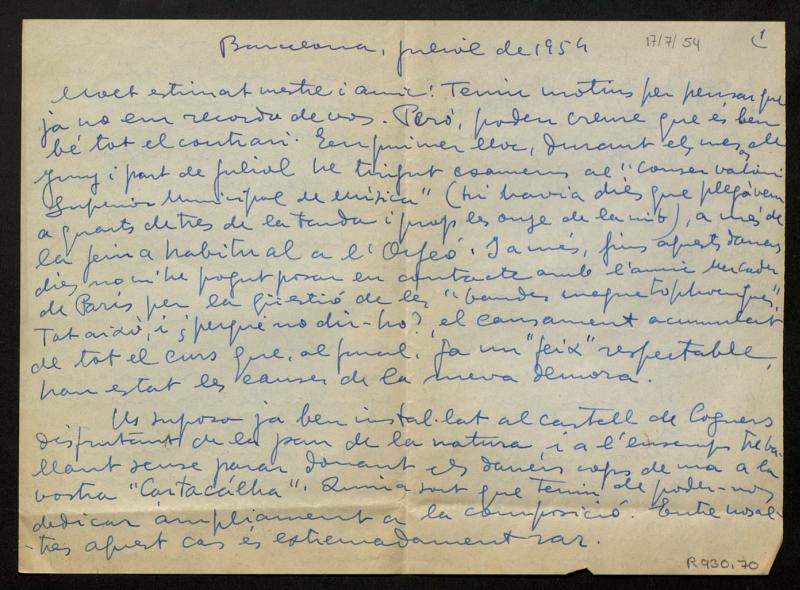 Barcelona, juliol de 1954 17/7/54 1
Molt estimat mestre i amic: Tenim motius per pensar que
ja no em recordo de vos. Però, poden creure que és ben
bé tot el contrari. En primer lloc, durant els mesos de
Juny i part de juliol he tingut examens al "Conservatori
Superior Municipal de Música" (hi havia dies que plegàvem
a quarts de tres de la tarda i prop les onze de la nit), a més de
la feina habitual a l'Orfeó. I a més, fins aquests darrers
dies no m'he pogut posar en contacte amb l'amic Mercader
de París per la qüestió de les "bandes magnetophoniques".
Tot això, i ¿perquè no dir-ho?, el cansament acumulat
de tot el curs que, al final, fa un "feix" respectable,
han estat les causes de la meva demora.
Us suposo ja ben instal·lat al castell de Cogners
disfrutant de la pau de la natura, i a l'ensemps treba-
llant sense parar donant els darrers cops de ma a la
vostra "Cartacalha". Quina sort que tenim de poder-nos
dedicar àmpliament a la composició. Entre nosal-
-tres aquest cas és extremadament rar.
R.930,70